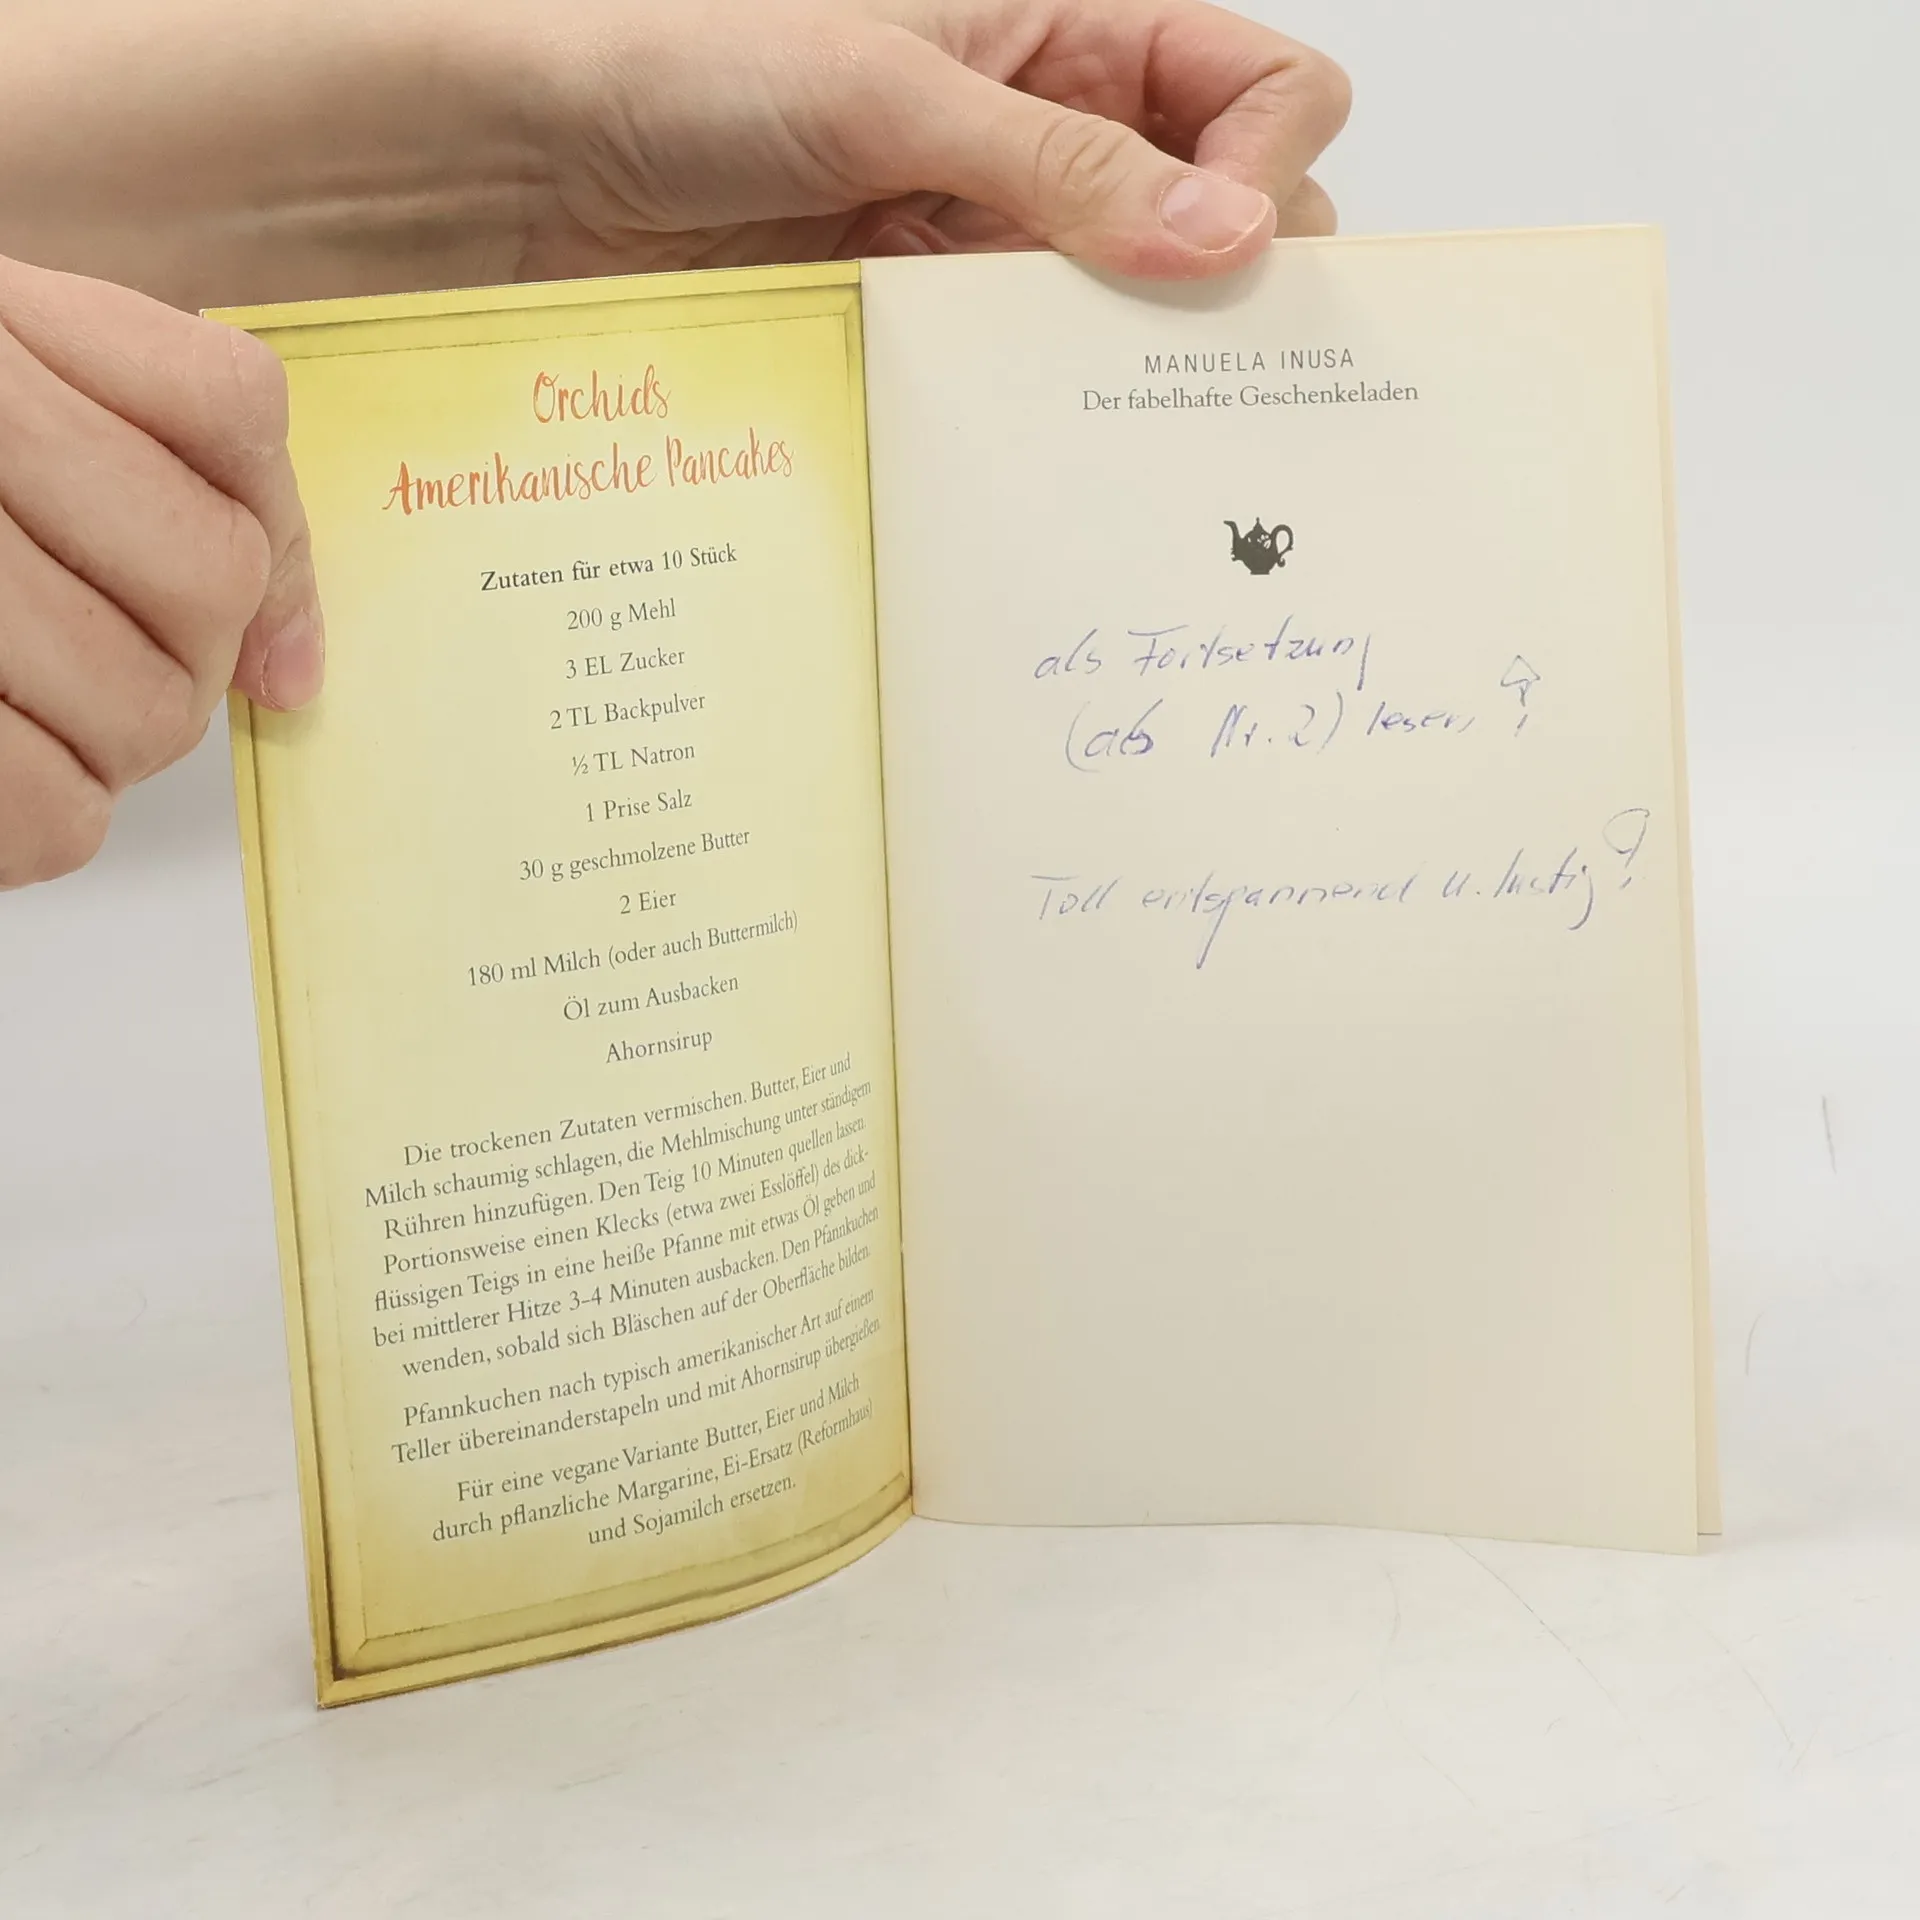 Orchids
Amerikanische Pancakes
Zutaten für etwa 10 Stück
200 g Mehl
3 EL Zucker
2 TL Backpulver
½ TL Natron
1 Prise Salz
30 g geschmolzene Butter
2 Eier
180 ml Milch (oder auch Buttermilch)
Öl zum Ausbacken
Ahornsirup
Die trockenen Zutaten vermischen. Butter, Eier und
Milch schaumig schlagen, die Mehlmischung unter ständigem
Rühren hinzufügen. Den Teig 10 Minuten quellen lassen.
Portionsweise einen Klecks (etwa zwei Esslöffel) des dick-
flüssigen Teigs in eine heiße Pfanne mit etwas Öl geben und
bei mittlerer Hitze 3–4 Minuten ausbacken. Den Pfannkuchen
wenden, sobald sich Bläschen auf der Oberfläche bilden.
Pfannkuchen nach typisch amerikanischer Art auf einem
Teller übereinanderstapeln und mit Ahornsirup übergießen.
Für eine vegane Variante Butter, Eier und Milch
durch pflanzliche Margarine, Ei-Ersatz (Reformhaus)
und Sojamilch ersetzen.
MANUELA INUSA
Der fabelhafte Geschenkeladen
als Fortsetzung
(als Nr. 2) lesen!
Toll entspannend u. lustig!